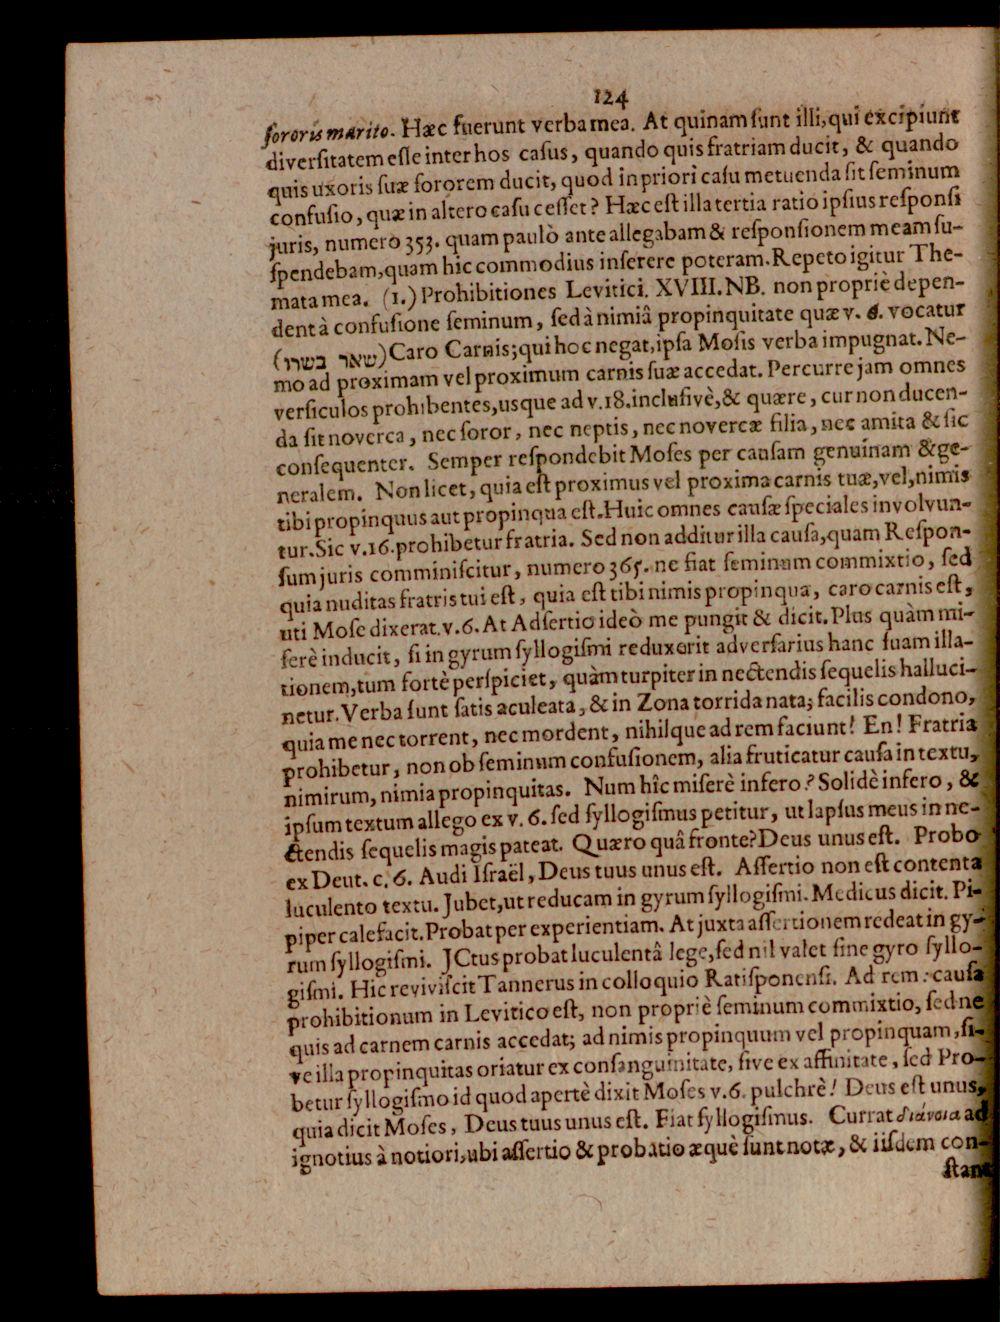 124
ſororis marito. Hæc fuerunt verba mea. At quinam ſunt illi, qui excipiunt
diverſitatem eſſe inter hos caſus, quando quis fratriam ducit, & quando
quis uxoris ſuæ ſororem ducit, quod in priori caſu metuenda ſit ſeminum
confuſio, quæ in altero caſu ceſſet? Hæc eſt illa tertia ratio ipſius reſponſi
juris, numero 353. quam paulò ante allegabam & reſponſionem meam ſu-
ſpendebam, quam hic commodius inſerere poteram. Repeto igitur The-
mata mea. (1.) Prohibitiones Levitici. XVIII. NB. non propriè depen-
dent à confuſione ſeminum, ſed à nimiâ propinquitate quæ v. 6. vocatur
(שאר בשרו) Caro Carnis; qui hoc negat, ipſa Moſis verba impugnat. Ne-
mo ad proximam vel proximum carnis ſuæ accedat. Percurre jam omnes
verſiculos prohibentes, usque ad v. 18. incluſivè, & quære, cur non ducen-
da ſit noverca, nec ſoror, nec neptis, nec novercæ filia, nec amita & ſic
conſequenter. Semper reſpondebit Moſes per cauſam genuinam & ge-
neralem. Non licet, quia eſt proximus vel proxima carnis tuæ, vel, nimis
tibi propinquus aut propinqua eſt. Huic omnes cauſæ ſpeciales involvun-
tur. Sic v. 16. prohibetur fratria. Sed non additur illa cauſa, quam Reſpon-
ſum juris comminiſcitur, numero 365. ne fiat ſeminum commixtio, ſed
quia nuditas fratris tui eſt, quia eſt tibi nimis propinqua, caro carnis eſt,
uti Moſe dixerat. v. 6. At Adſertio ideò me pungit & dicit. Plus quàm mi-
ſerè inducit, ſi in gyrum ſyllogiſmi reduxerit adverſarius hanc ſuam illa-
tionem, tum fortè perſpiciet, quàm turpiter in nectendis ſequelis halluci-
netur. Verba ſunt ſatis aculeata, & in Zona torrida nata; facilis condono,
quia me nec torrent, nec mordent, nihilque ad rem faciunt! En! Fratria
prohibetur, non ob ſeminum confuſionem, alia fruticatur cauſa in textu,
nimirum, nimia propinquitas. Num hîc miſerè infero? Solidè infero, &
ipſum textum allego ex v. 6. ſed ſyllogiſmus petitur, ut lapſus meus in ne-
ctendis ſequelis magis pateat. Quæro quâ fronte? Deus unus eſt. Probo
ex Deut. c. 6. Audi Iſraël, Deus tuus unus eſt. Aſſertio non eſt contenta
luculento textu. Jubet, ut reducam in gyrum ſyllogiſmi. Medicus dicit. Pi-
piper calefacit. Probat per experientiam. At juxta aſſertionem redeat in gy-
rum ſyllogiſmi. JCtus probat luculentâ lege, ſed nil valet ſine gyro ſyllo-
giſmi. Hic reviviſcit Tannerus in colloquio Ratiſponenſi. Ad rem: cauſa
prohibitionum in Levitico eſt, non propriè ſeminum commixtio, ſed ne
quis ad carnem carnis accedat; ad nimis propinquum vel propinquam, ſi-
ve illa propinquitas oriatur ex conſanguinitate, ſive ex affinitate, ſed Pro-
betur ſyllogiſmo id quod apertè dixit Moſes v. 6. pulchrè! Deus eſt unus,
quia dicit Moſes, Deus tuus unus eſt. Fiat ſyllogiſmus. Currat διάνοια ad
ignotius à notiori, ubi aſſertio & probatio æquè ſunt notæ, & iiſdem con-
ſtant